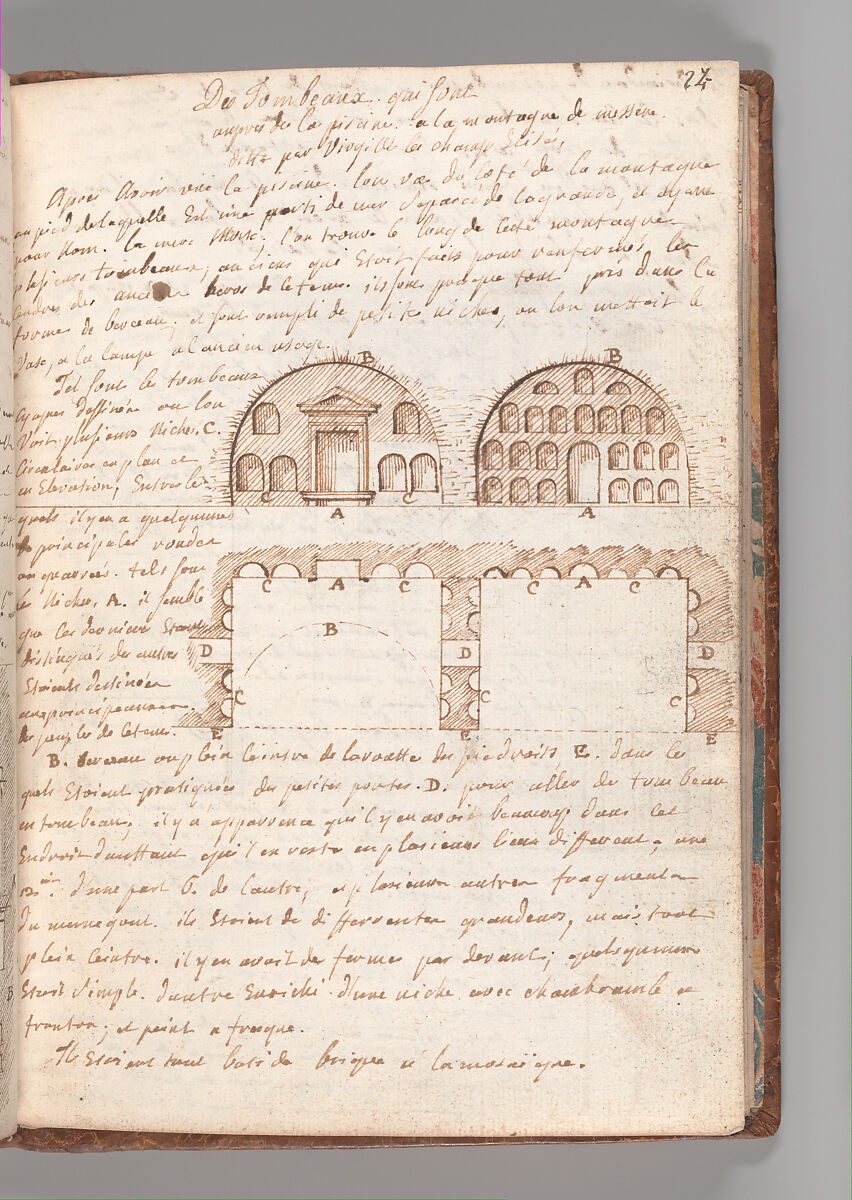 24
Des Tombeaux. qui sont
aupres de la piscine. a la montagne de messene.
ditte par Virgille les champs Elisé,
Apres Avoir vue la piscine. lon vas du Coté de la montagne
au pied de laquelle Est une parti de mer Separé de la grande, et ayant
pour Nom. la mere Morte. l'on trouve le long de Cette montagne
plusieurs tombeaux, anciens qui Etoit faits pour renfermés, les
Cendres des anciens heros de Cetems. ils sont presque tous pris dans la
forme de berceau, et sont rempli de petite niches, ou lon mettoit le
Vase, a la lampe a lancien usage.
Tel sont le tombeaux
Cy apres dessinée ou lon
Voit plusieurs Niche, C.
Circulaires en plan et
en Elevation, Entre les
quels il y en a quelqunnes
principales rondes
ou quarrées. tels sont
les Niches, A. il semble
que Ces derniers Etant
distingués des autres
Etoients destinées
aux principeaux
du peuple de Cetems.
B B
C C
A A
C A C C A C
B
D D D
C C C
E E E
B. berceau ou plein Ceintre de la voutte des piedroits E. dans les
quels Etoient pratiquées des petites portes. D. pour aller de tombeau
en tombeau, il y a apparrence qu'il y en avoit beaucoup dans Cet
Endroit d'auttant qu'il en reste en plusieurs lieux different, une
12.ne d'une part 6. de l'autre, et plusieurs autres fragments
du meme gout. ils Etoient de differrentes grandeurs, mais tout
plein Ceintre. il y en avoit de fermes par devant, quelqunnes
Etoit Simple. d'autre Enrichi d'une niche avec Chambranle et
fronton, et peint a fresque.
Ils Etoient tout bati de brique a la mosaique.